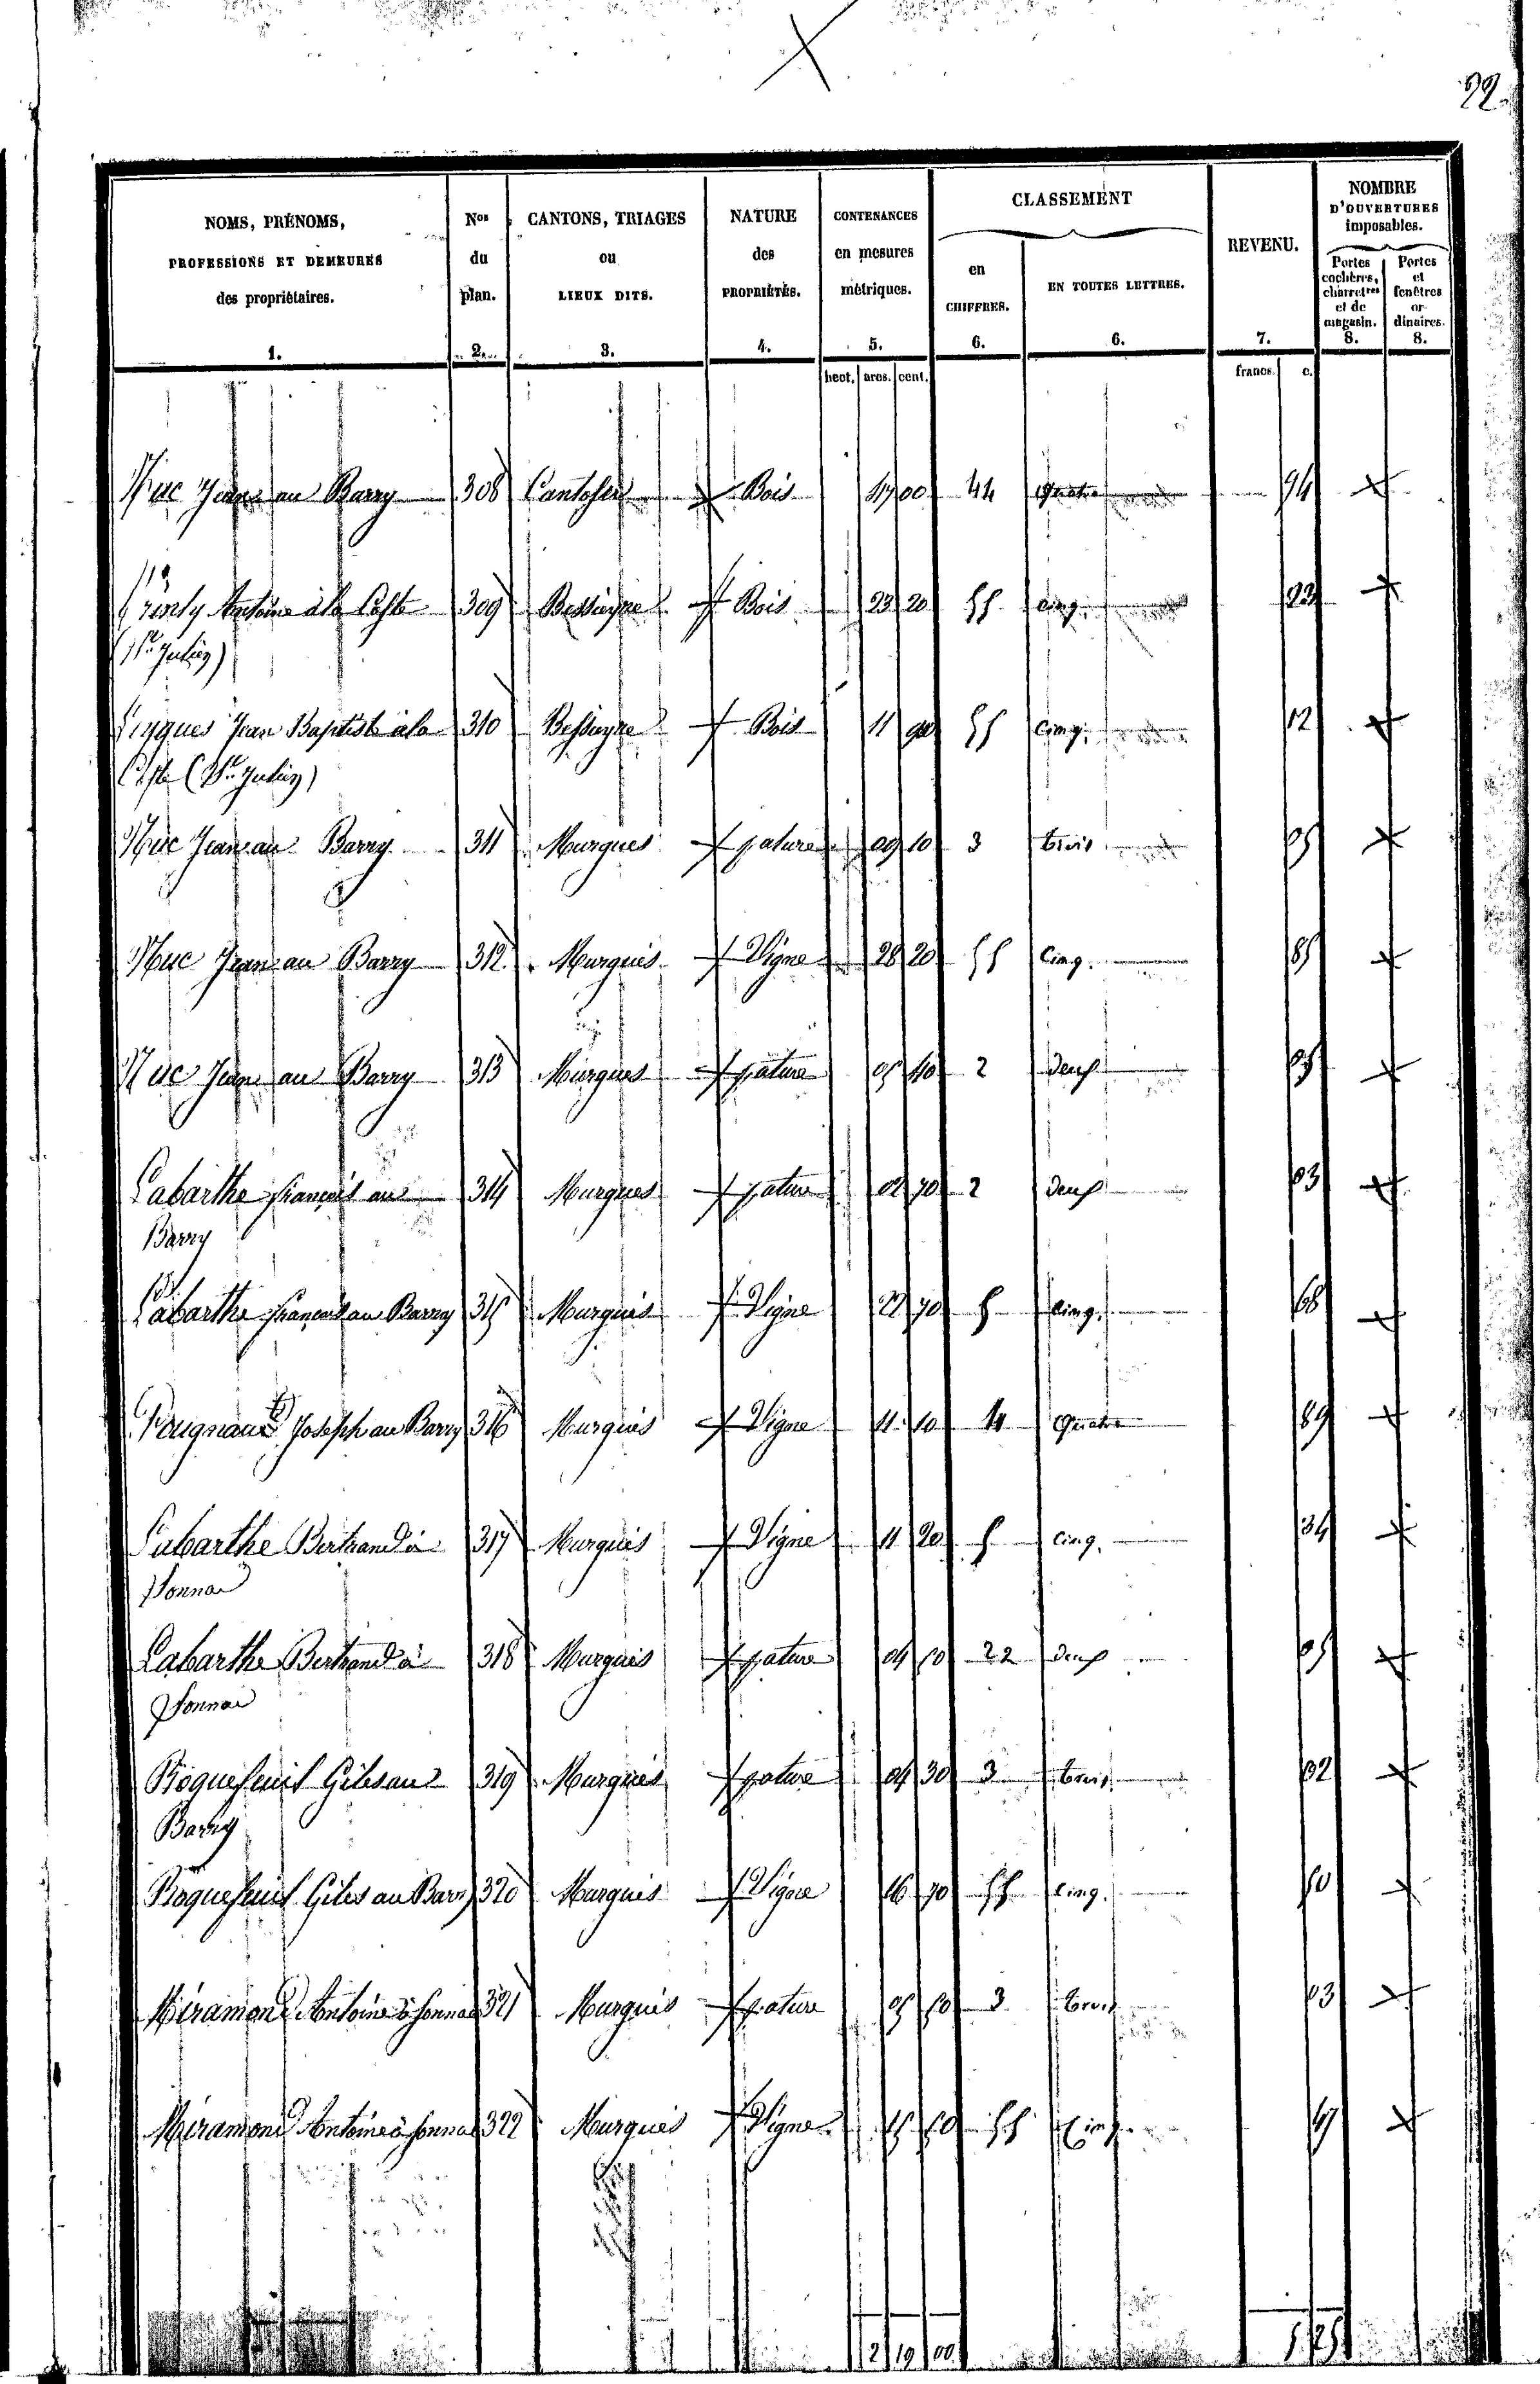 22.
NOMS, PRÉNOMS, PROFESSIONS ET DEMEURES des propriétaires. 1.
Nos du plan. 2.
CANTONS, TRIAGES ou LIEUX DITS. 3.
NATURE des PROPRIÉTÉS. 4.
CONTENANCES en mesures métriques. 5.
CLASSEMENT
en CHIFFRES. 6.
EN TOUTES LETTRES. 6.
REVENU. 7.
NOMBRE D'OUVERTURES imposables.
Portes cochères, charretres et de magasin. 8.
Portes et fenêtres or dinaires. 8.
hect. ares. cent. francs. c.
Huc Jean au Barry 308 Bois 00 44 Quatre 94
Antoine à la Coste 309 Bessayre Bois 23 20 55 Cinq. 23
(St. Julien)
Jean Baptiste à la 310 Bessayre Bois 11 90 55 Cinq. 12
Coste (St. Julien)
Huc Jean au Barry 311 Murques pature 09 10 3 trois 05
Huc Jean au Barry 312 Murques Vigne 28 20 55 Cinq. 85
Huc Jean au Barry 313 Murques pature 05 40 2 deux 05
Labarthe françois au 314 Murques pature 02 70 2 deux 03
Barry
Labarthe françois au Barry 315 Murques Vigne 22 70 5 Cinq. 68
Joseph au Barry 316 Murques Vigne 11 10 4 Quatre 89
Labarthe Bertrand à 317 Murques Vigne 11 20 5 cinq. 34
Sonnac
Labarthe Bertrand à 318 Murques pature 22 deux 05
Sonnac
Roquefeuil Giles au 319 Murques pature 04 30 3 trois 02
Barry
Roquefeuil Giles au Barry 320 Murques Vigne 16 70 55 Cinq. 50
Miramond Antoine à Sonnac 321 Murques pature 05 50 3 trois 03
Miramond Antoine à Sonnac 322 Murques Vigne 15 55 Cinq. 47
2 19 00 5 25